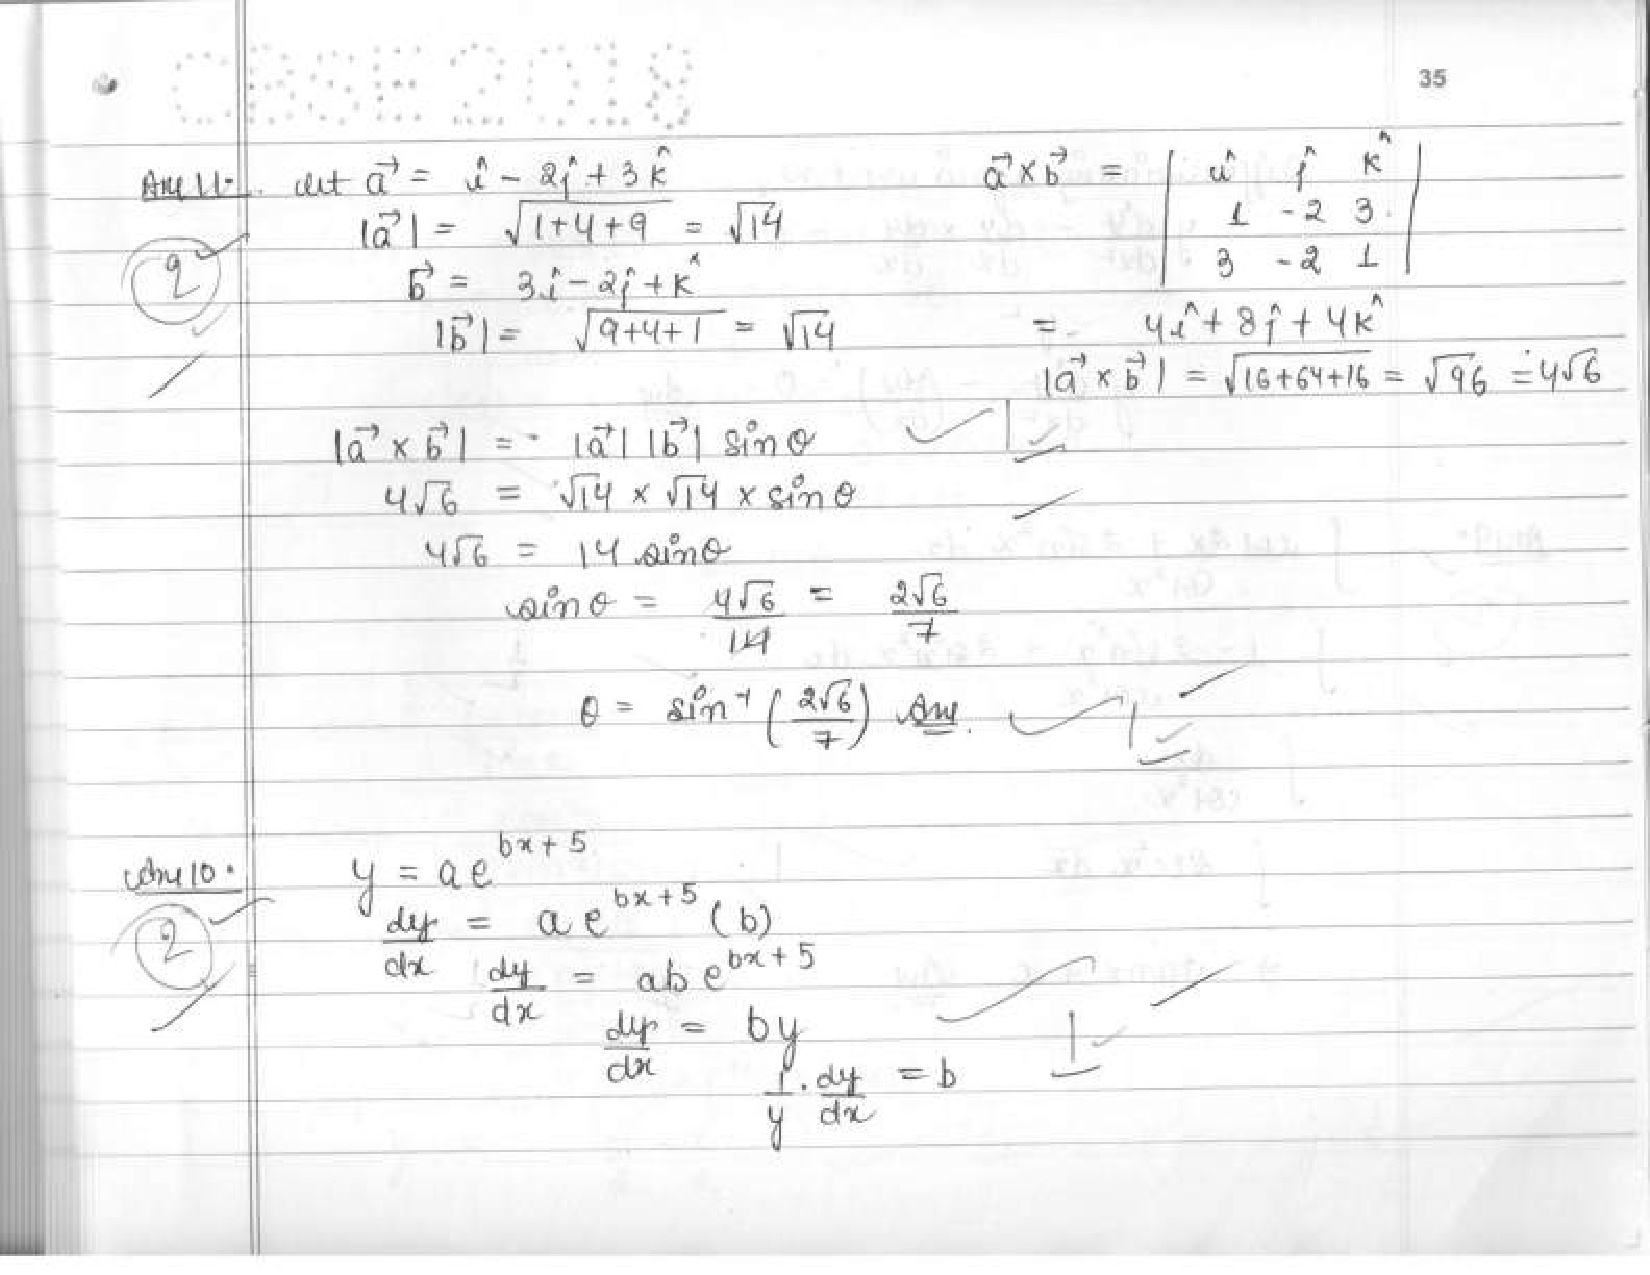 CBSE 2018
35
Ans 11. Let a⃗ = î - 2ĵ + 3k̂
|a⃗| = √(1+4+9) = √14
b⃗ = 3î - 2ĵ + k̂
|b⃗| = √(9+4+1) = √14
a⃗ × b⃗ = | î ĵ k̂ |
| 1 -2 3 |
| 3 -2 1 |
= 4î + 8ĵ + 4k̂
|a⃗ × b⃗| = √(16+64+16) = √96 = 4√6
2
|a⃗ × b⃗| = |a⃗| |b⃗| sin θ
1
4√6 = √14 × √14 × sin θ
4√6 = 14 sin θ
sin θ = 4√6/14 = 2√6/7
θ = sin⁻¹ (2√6/7) Ans.
1
Ans 10. y = ae^(bx+5)
2
dy/dx = ae^(bx+5) (b)
dy/dx = abe^(bx+5)
dy/dx = by
1
1/y . dy/dx = b